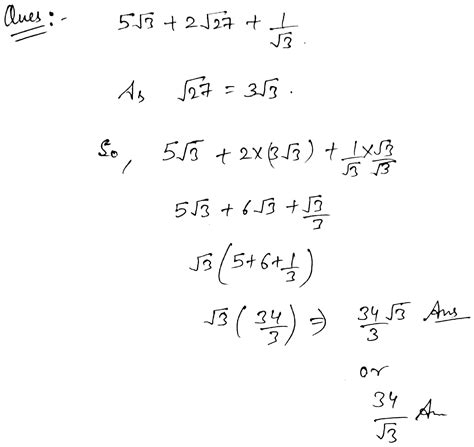 Ques:- 5√3 + 2√27 + 1/√3.
As √27 = 3√3.
So, 5√3 + 2×(3√3) + 1/√3 × √3/√3
5√3 + 6√3 + √3/3
√3(5+6+1/3)
√3(34/3) ⇒ 34/3 √3 Ans
or
34/√3 An